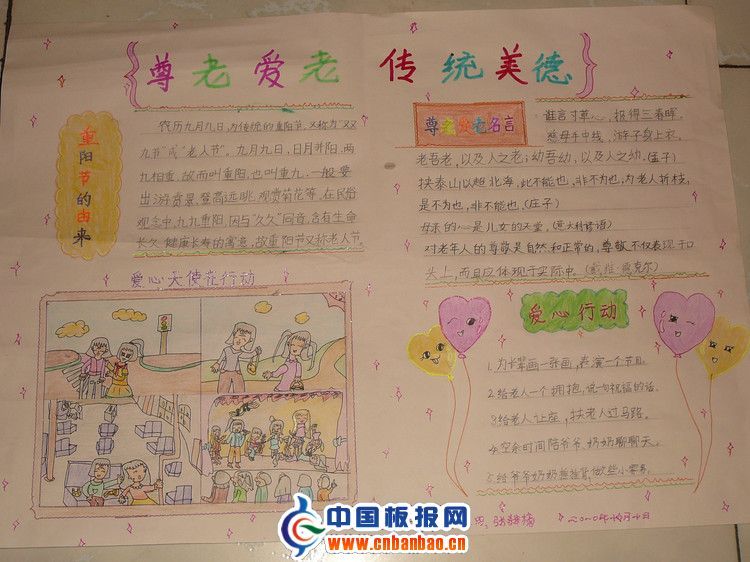 尊老爱老 传统美德
重阳节的由来
农历九月九日,为传统的重阳节,又称为"双
九节"或"老人节"。九月九日,日月并阳,两
九相重,故而叫重阳,也叫重九,一般要
出游赏景、登高远眺、观赏菊花等,在民俗
观念中,九九重阳,因与"久久"同音,含有生命
长久、健康长寿的寓意,故重阳节又称老人节。
爱心天使在行动
尊老爱老名言
谁言寸草心,报得三春晖。
慈母手中线,游子身上衣。
老吾老,以及人之老;幼吾幼,以及人之幼。(孟子)
挟泰山以超北海,此不能也,非不为也,为老人折枝,
是不为也,非不能也。(庄子)
母亲的心是儿女的天堂。(意大利谚语)
对老年人的尊敬是自然和正常的,尊敬不仅表现于口
头上,而且应体现于实际中。(戴维 德克尔)
爱心行动
1.为长辈画一张画,表演一个节目。
2.给老人一个拥抱,说一句祝福的话。
3.给老人让座,扶老人过马路。
4.空余时间陪爷爷、奶奶聊聊天。
5.给爷爷奶奶捶捶背,做些小零务
中国板报网
www.cnbanbao.cn